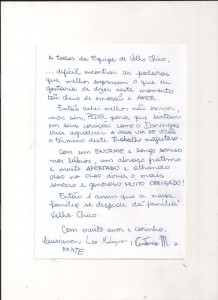 A todos da Equipe de Velho Chico,
... difícil encontrar as palavras
que melhor expressem o que eu
gostaria de dizer neste momento
tão cheio de emoção e AMOR.
Então achei melhor não escrever,
mas sim, PEDIR para que sintam
em seus corações como o Domingos
iria agradecer A CADA UM DE VOCÊS
o término deste trabalho majestoso
Com um ENORME e longo sorriso
nos lábios, um abraço fraterno
e muito APERTADO e olhando
olho no olho diria o mais
sincero e generoso MUITO OBRIGADO!
Então é assim que a nossa
família se despede da família
Velho Chico.
Com muito amor e carinho,
Luciana, Antônio M. e
DANTE